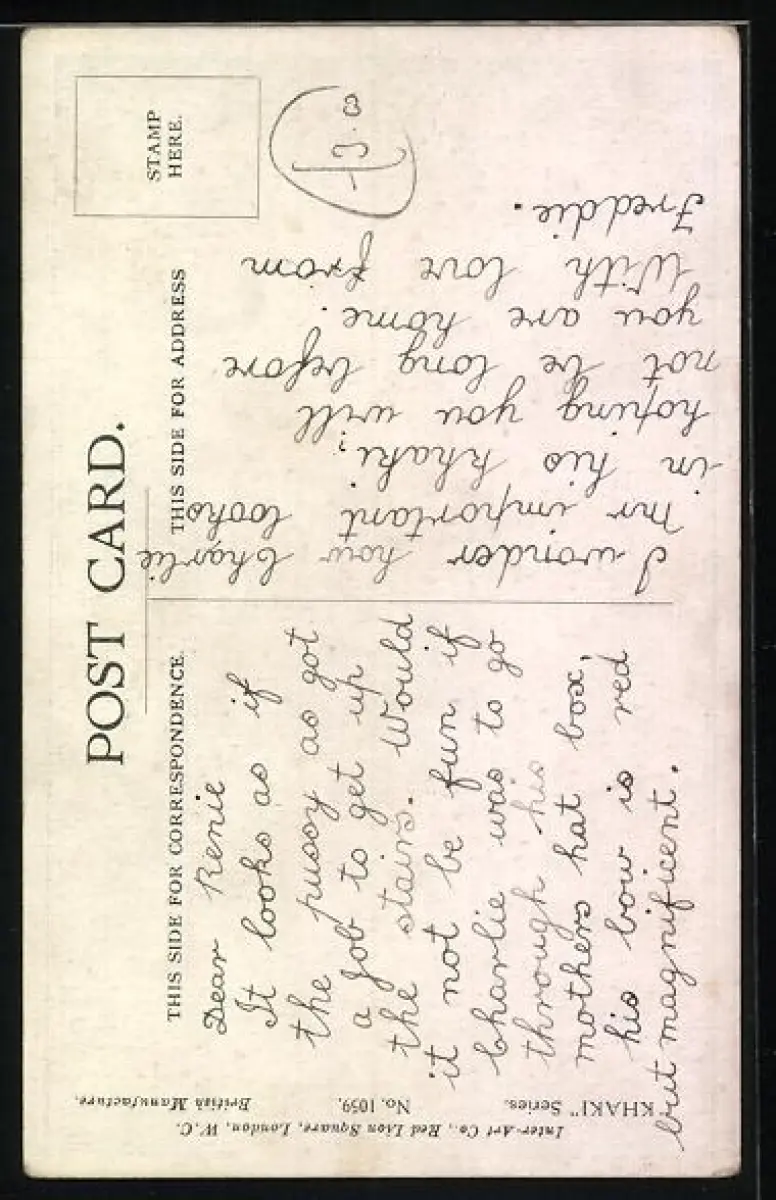 POST CARD.
THIS SIDE FOR CORRESPONDENCE.
THIS SIDE FOR ADDRESS
STAMP
HERE.
Dear Renie
It looks as if
the pussy as got
a job to get up
the stairs. Would
it not be fun if
Charlie was to go
through his
mothers hat box,
his bow is red
but magnificent.
I wonder how Charlie
mr important looks
in his khaki;
hoping you will
not be long before
you are home.
With love from
Freddie.
"KHAKI" Series. No. 1059. British Manufacture.
Inter-Art Co., Red Lion Square, London, W.C.